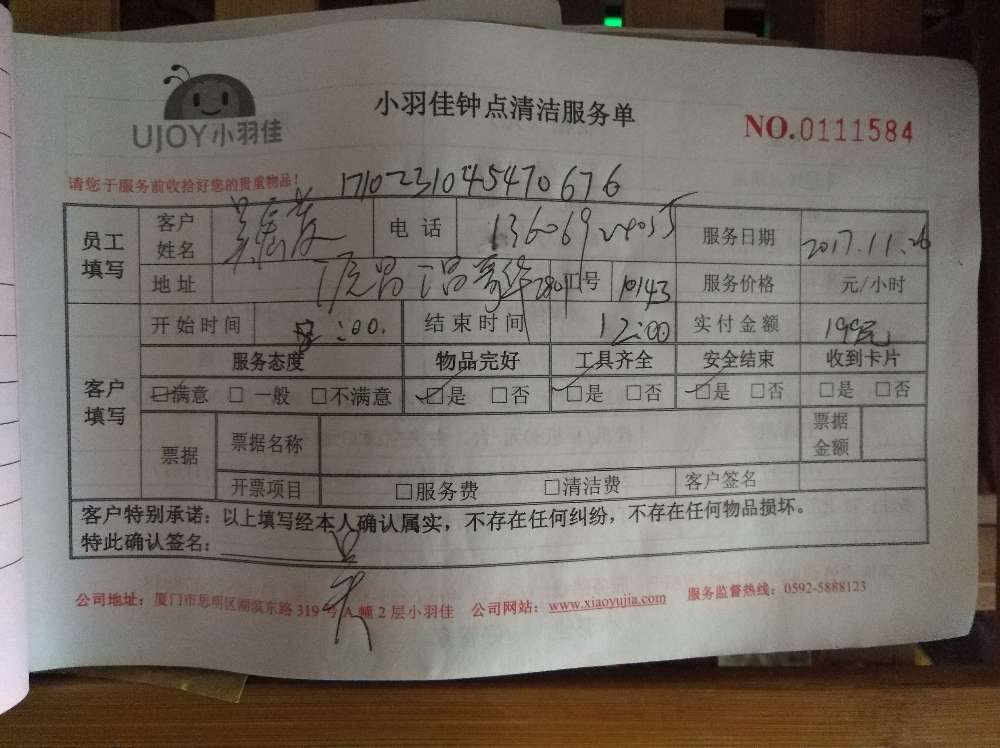 小羽佳钟点清洁服务单
NO.0111584
UJOY小羽佳
请您于服务前收拾好您的贵重物品!
1710231045470676
员工填写 客户姓名 电话 服务日期 2017.11.26
地址 号 10143 服务价格 元/小时
客户填写 开始时间 :00. 结束时间 12:00 实付金额 199元
服务态度 物品完好 工具齐全 安全结束 收到卡片
☑满意 □一般 □不满意 ☑是 □否 ☑是 □否 ☑是 □否 □是 □否
票据 票据名称 票据金额
开票项目 □服务费 □清洁费 客户签名
客户特别承诺：以上填写经本人确认属实，不存在任何纠纷，不存在任何物品损坏。
特此确认签名：
公司地址：厦门市思明区湖滨东路319号A幢2层小羽佳 公司网站：www.xiaoyujia.com 服务监督热线：0592-5888123